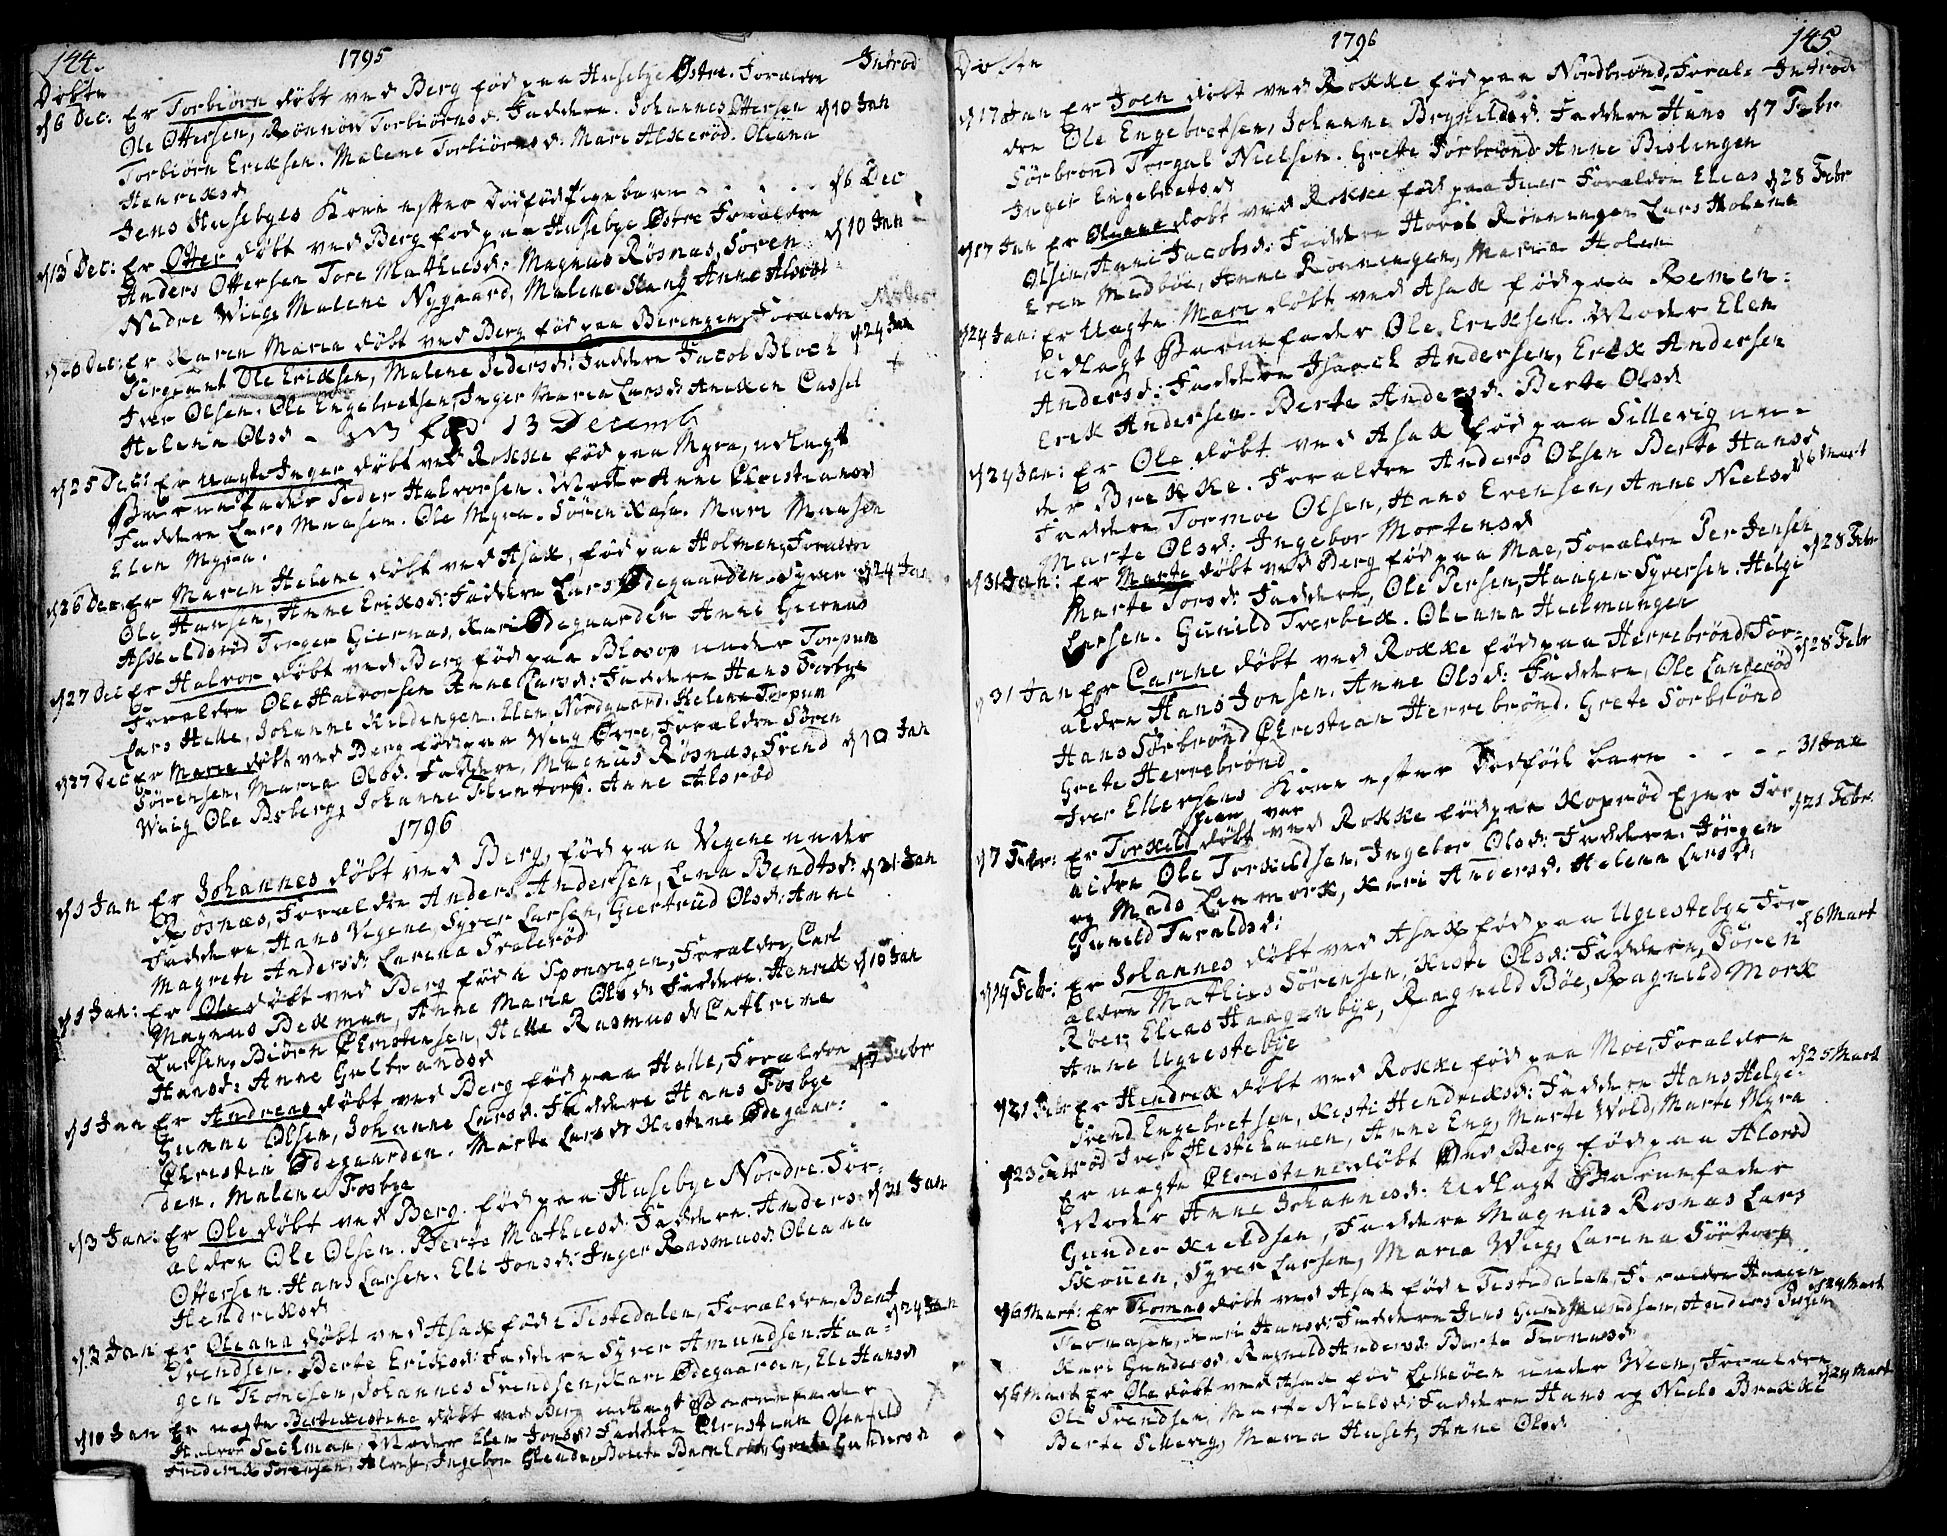 144.
1795
Introd
Döbte
d 6 Dec: Er Torbiörn döbt ved Berg föd paa Husebye Östre. Foraldre
Ole Ottersen, Rönnov Torbiörnsd: Faddere. Johannes Ottersen d 10 Jan
Torbiörn Eriksen. Malene Torbiörnsd: Mari Alseröd. Oliana
Henriksd
Jens Husebyes Kone efter Dödfödt Pigebarn - - - - d 6 Dec
d 13 Dec: Er Otter döbt ved Berg föd paa Husebye Östre Foraldre
Anders Ottersen Tore Mathiesd: Magnus Rösnæs, Sören d 10 Jan
Nedre Wiig, Malene Nygaard, Malene Stang Anne Alsröd
d 20 Dec: Er Karen Maria döbt ved Berg föd paa Berengen, Foraldre
Sergiant Ole Eriksen, Malene Pedersd: Faddere Jacob Bloch d 24 Jan
Iver Olsen. Ole Engebretsen, Inger Maria Larsd: Aniken Cassel
Helena Olsd - NB föd 13 Decemb
d 25 Dec: Er uagte Inger döbt ved Rokke föd paa Myra, udlagt
Barnefader Peder Halvorsen. Moder Anne Christiansd
Faddere Lars Maasen. Ole Myra. Sören Kasa. Mari Maasen
Elen Myra.
d 26 Dec: Er Maren Helene döbt ved Asak, föd paa Holmen, Foraldre
Ole Hansen, Anne Eriksd: Faddere Lars Ödegaarden. Syver d 24 Jan
Askeldsröd Torger Giernæs, Kari Ödegaarden Anne Giernæs
d 27 Dec Er Halvor döbt ved Berg föd paa Blosop under Torpum
Foraldre Ole Halvorsen Anne Larsd: Faddere Hans Fosbye
Lars Helle, Johanne Kildengen. Elen Nordgaard. Helena Torpum
d 27 Dec Er Maria döbt ved Berg föd paa Wiig Övre, Foraldre Sören
Sörensen, Maria Olsd: Faddere, Magnus Rösnæs, Svend d 10 Jan
Wiig Ole Isberg, Johanne Flentorp. Anne Alsröd
1796
d 1 Jan Er Johannes döbt ved Berg, föd paa Vegene under
Rösnæs, Foraldre Anders Andersen, Lena Bendtsd: d 31 Jan
Faddere Hans Vegene, Syver Larsen, Giertrud Olsd: Anne
Magrete Andersd: Larena Svaleröd
d 1 Jan: Er Ole döbt ved Berg föd i Sponvigen, Foraldre, Carl
Magnus Bekman, Anne Maria Olsd: Faddere. Henrik d 10 Jan
Larsen, Biörn Christensen, Helle Rasmusd: Cathrine
Hansd: Anne Gulbrandsd
d 1 Jan Er Andreas döbt ved Berg föd paa Halle, Foraldre d 7 Febr
Gunne Olsen, Johanne Larsd: Faddere Hans Fosbye
Christen Ödegaarden. Marte Larsd: Kistine Ödegaar:
den. Malene Fosbye
d 3 Jan: Er Ole döbt ved Berg. föd paa Husebye Nordre. For-
aldre Ole Olsen. Berte Mathiesd: Faddere. Anders d 31 Jan
Ottersen. Hans Larsen. Eli Jonsd: Inger Rasmusd: Oleana
Hendriksd
d 3 Jan Er Oleana döbt ved Asak föd i Tistedalen, Foraldre, Bent d 24 Jan
Svendsen. Berte Eriksd: Faddere Syver Amundsen. Haa-
gen Thomesen, Johannes Svendsen, Kari Ödegaarden, Eli Hansd
d 10 Jan Er uagte Bertekistine döbt ved Berg udlagt Barnefader
Halvor Seelman, Moder Elen Jonsd: Faddere Christian Osenfeld
Frederik Sörensen, Alvesen, Ingebor Glende, Berte Barnholt, Grete Gundersd
145
1796
Döbte
Introd:
d 17 Jan Er Joen döbt ved Rokke föd paa Nordbrönd, Foral-
dre Ole Engebretsen, Johanne Brynildsd: Faddere Hans d 7 Febr
Sörbrönd Torgal Nielsen. Grete Sörbrönd Anne Bislingen
Inger Engebretsd
d 17 Jan Er Oleane döbt ved Rokke föd paa Juer Foraldre Elias d 28 Febr
Olsen, Anne Jacobsd: Faddere Havel Rönningen Lars Holene
Even Medböe, Anne Rönningen, Maria Holen
d 24 Jan: Er Uagte Mari döbt ved Asak föd paa Remen:
Udlagt Barnefader Ole Eriksen. Moder Elen
Andersd: Faddere Isaach Andersen, Erik Andersen
Erik Andersen. Berte Andersd: Berte Olsd
d 24 Jan: Er Ole döbt ved Asak föd paa Sillevig un-
der Brekke. Foraldre Anders Olsen Berte Hansd
Faddere Tormoe Olsen, Hans Evensen, Anne Nielsd d 6 Mart
Marte Olsd: Ingebor Mortensd
d 31 Jan: Er Marte döbt ved Berg föd paa Moe, Foraldre Per Jensen
Marte Torsd: Faddere, Ole Persen, Haagen Syversen. Helge d 28 Febr
Larsen. Gunild Tverbek. Oleana Hielmungen
d 31 Jan Er Carine döbt ved Rokke föd paa Herrebrönd, For-
aldre Hans Jonsen. Anne Olsd: Faddere, Ole Langeröd d 28 Febr
Hans Sörbrönd Christian Herrebrönd. Grete Sörbrönd
Grete Herrebrönd
Iver Ellersens Kone efter Dödföd barn - - - 31 Jan
d 7 Febr: Er Torkild döbt ved Rokke föd paa Kopröd Ejer For
aldre Ole Torkildsen, Ingebor Olsd: Faddere: Jörgen d 21 Febr.
og Mads Lenmork, Kari Andersd: Helena Larsd:
Gunild Taraldsd:
d 14 Febr: Er Johannes döbt ved Asak föd paa Ugiestebye For
aldre Mathies Sörensen, Kisti Olsd: Faddere, Sören d 6 Mart
Röer, Elias Haagenbye, Ragnild Böe, Ragnild Mork
Anne Ugiestebye
d 21 Febr Er Hendrik döbt ved Rokke föd paa Moe, Foraldre
Svend Engebretsen, Kisti Hendriksd: Faddere Hans Helge- d 25 Mart
röd Iver Hestehauen, Anne Eng, Marte Wold, Marte Myra
d 23 Febr Er uagte Christine döbt Ved Berg föd paa Alsröd
Moder Anne Johannesd: Udlagt Barnefader
Gunder Kieldsen, Faddere Magnus Rosnæs Lars
Skouen, Syver Larsen, Maria Wiig, Larena Sörtorp
d 6 Mart: Er Thomas döbt ved Asak föd i Tistedalen, Foraldre Haagen
Thomasen, Kari Hansd: Faddere Jens Gundmundsen, Anders d 24 Mart
Kari Gundersd: Ragnild Andersd: Berte Thomasd
d 6 Mart Er Ole döbt ved Asak föd Lilleöen under Ween, Foraldre
Ole Svendsen, Marte Nielsd: Faddere Hans og Niels Brekke d 24 Mart
Berte Sillevig, Maria Huset, Anne Olsd